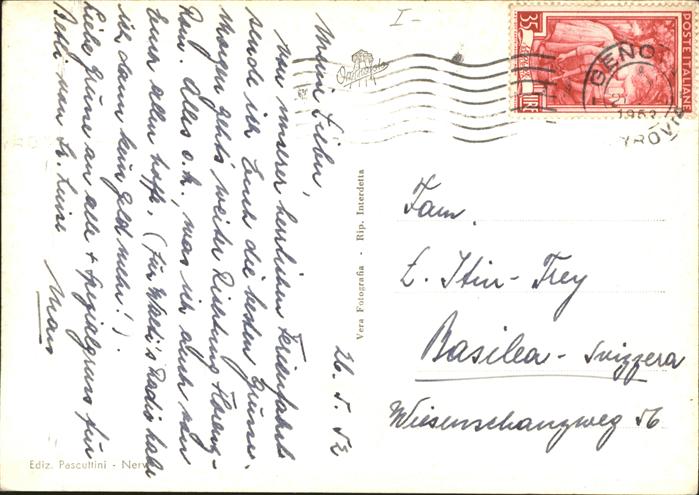 26. 5. 52
Meine Lieben,
von unserer herrlichen Ferienfahrt
sende ich Euch die besten Grüsse.
Morgen geht's weiter Richtung Florenz-
Rom. Alles o.k., was ich auch von
Euch allen hoffe. (Für Walti's Radio habe
ich dann kein Geld mehr!).
Liebe Grüsse an alle + Spezialgruss für
Betli von Sr. Luise
Ediz. Pascuttini - Nervi
Vera Fotografia - Rip. Interdetta
I-
POSTE ITALIANE
35
LIRE
GENOVA
1952
Fam.
E. Itin-Frey
Basilea - Svizzera
Wiesenschanzweg 56